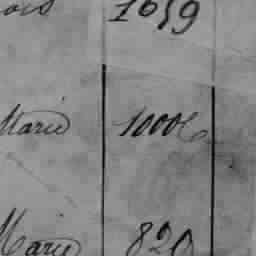 ois 1659
Marie 1000
Marie 820